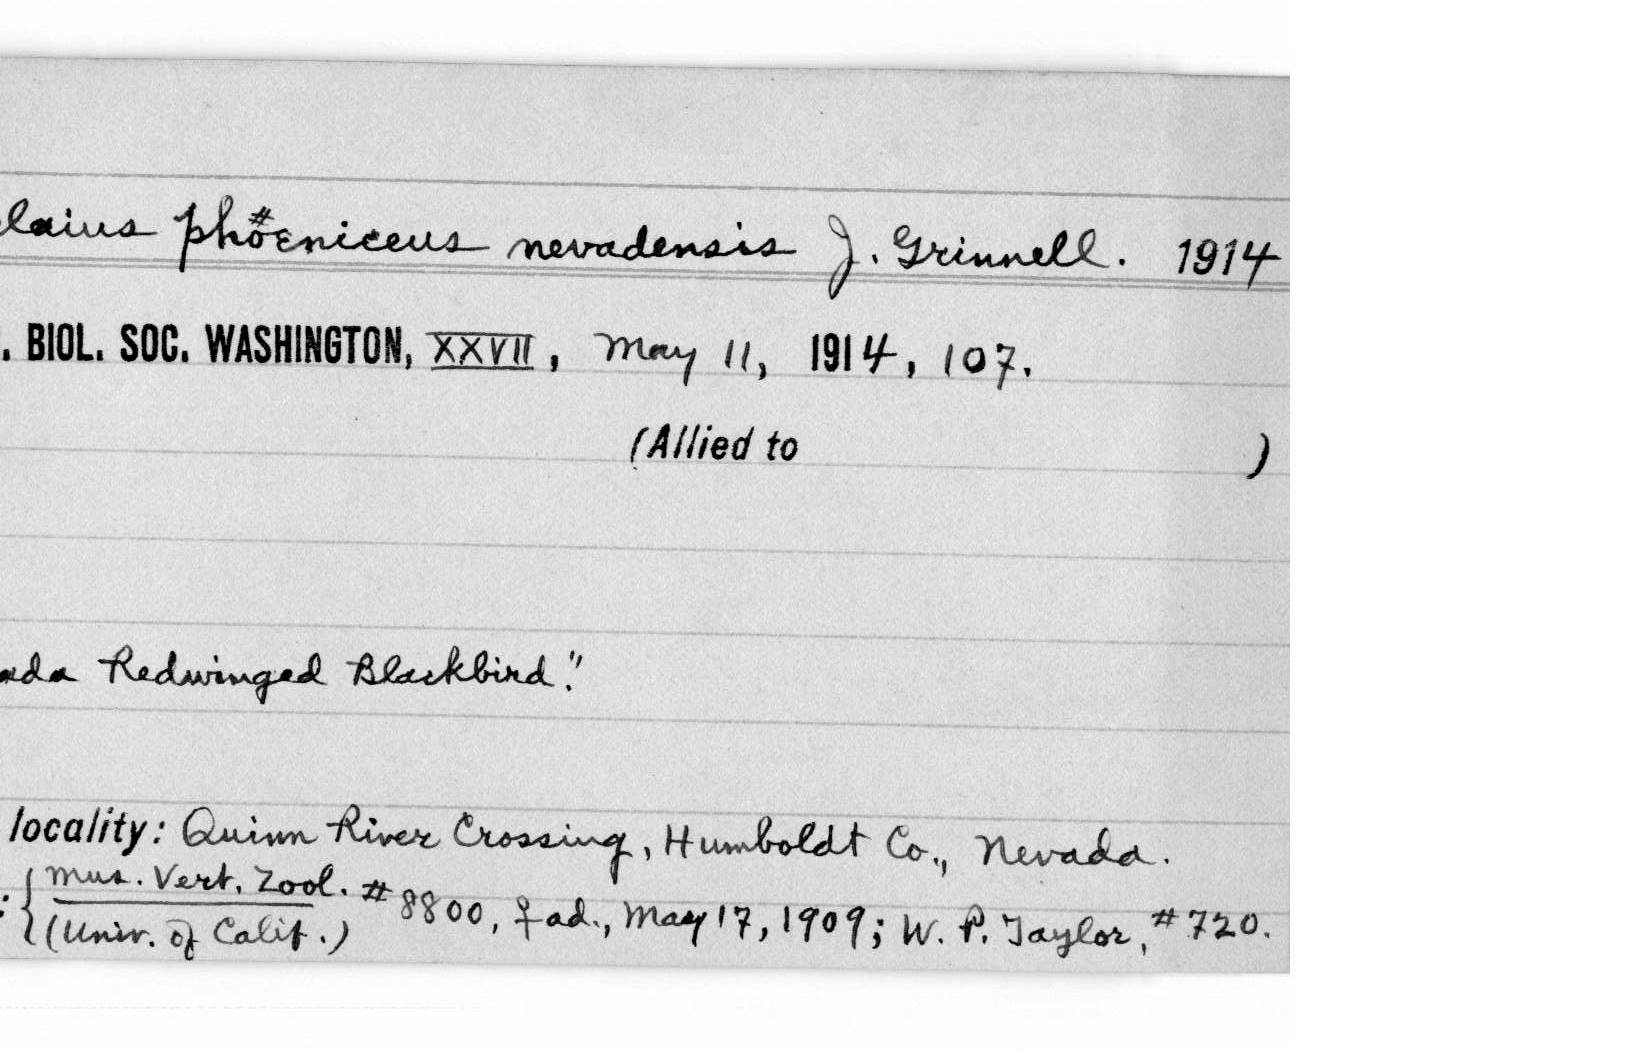 laius phöeniceus nevadensis J. Grinnell. 1914
. BIOL. SOC. WASHINGTON, XXVII, May 11, 1914, 107.
(Allied to )
ada Redwinged Blackbird."
locality: Quinn River Crossing, Humboldt Co., Nevada.
: { Mus. Vert. Zool. # 8800, ♀ ad., May 17, 1909; W. P. Taylor, # 720.
(Univ. of Calif.)